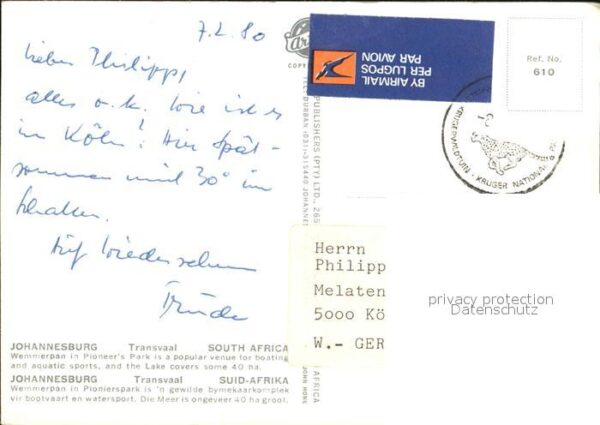 7.2.80
Lieber Philipp,
alles o.k. Wie ist es
in Köln? Hier Spät-
sommer mit 30° im
Schatten.
Auf Wiedersehen
Trude
JOHANNESBURG Transvaal SOUTH AFRICA
Wemmerpan in Pioneer's Park is a popular venue for boating
and aquatic sports, and the Lake covers some 40 ha.
JOHANNESBURG Transvaal SUID-AFRIKA
Wemmerpan in Pionierspark is 'n gewilde bymekaarkomplek
vir bootvaart en watersport. Die Meer is ongeveer 40 ha groot.
PUBLISHERS (PTY) LTD., 265
DURBAN (031) 311440 JOHANNES
AFRICA
JOHN HONE
COPY
BY AIRMAIL
PER LUGPOS
PAR AVION
Ref. No.
610
KRUGERWILDTUIN - KRUGER NATIONAL
Herrn
Philipp
Melaten
5000 Kö
W.- GER
privacy protection
Datenschutz